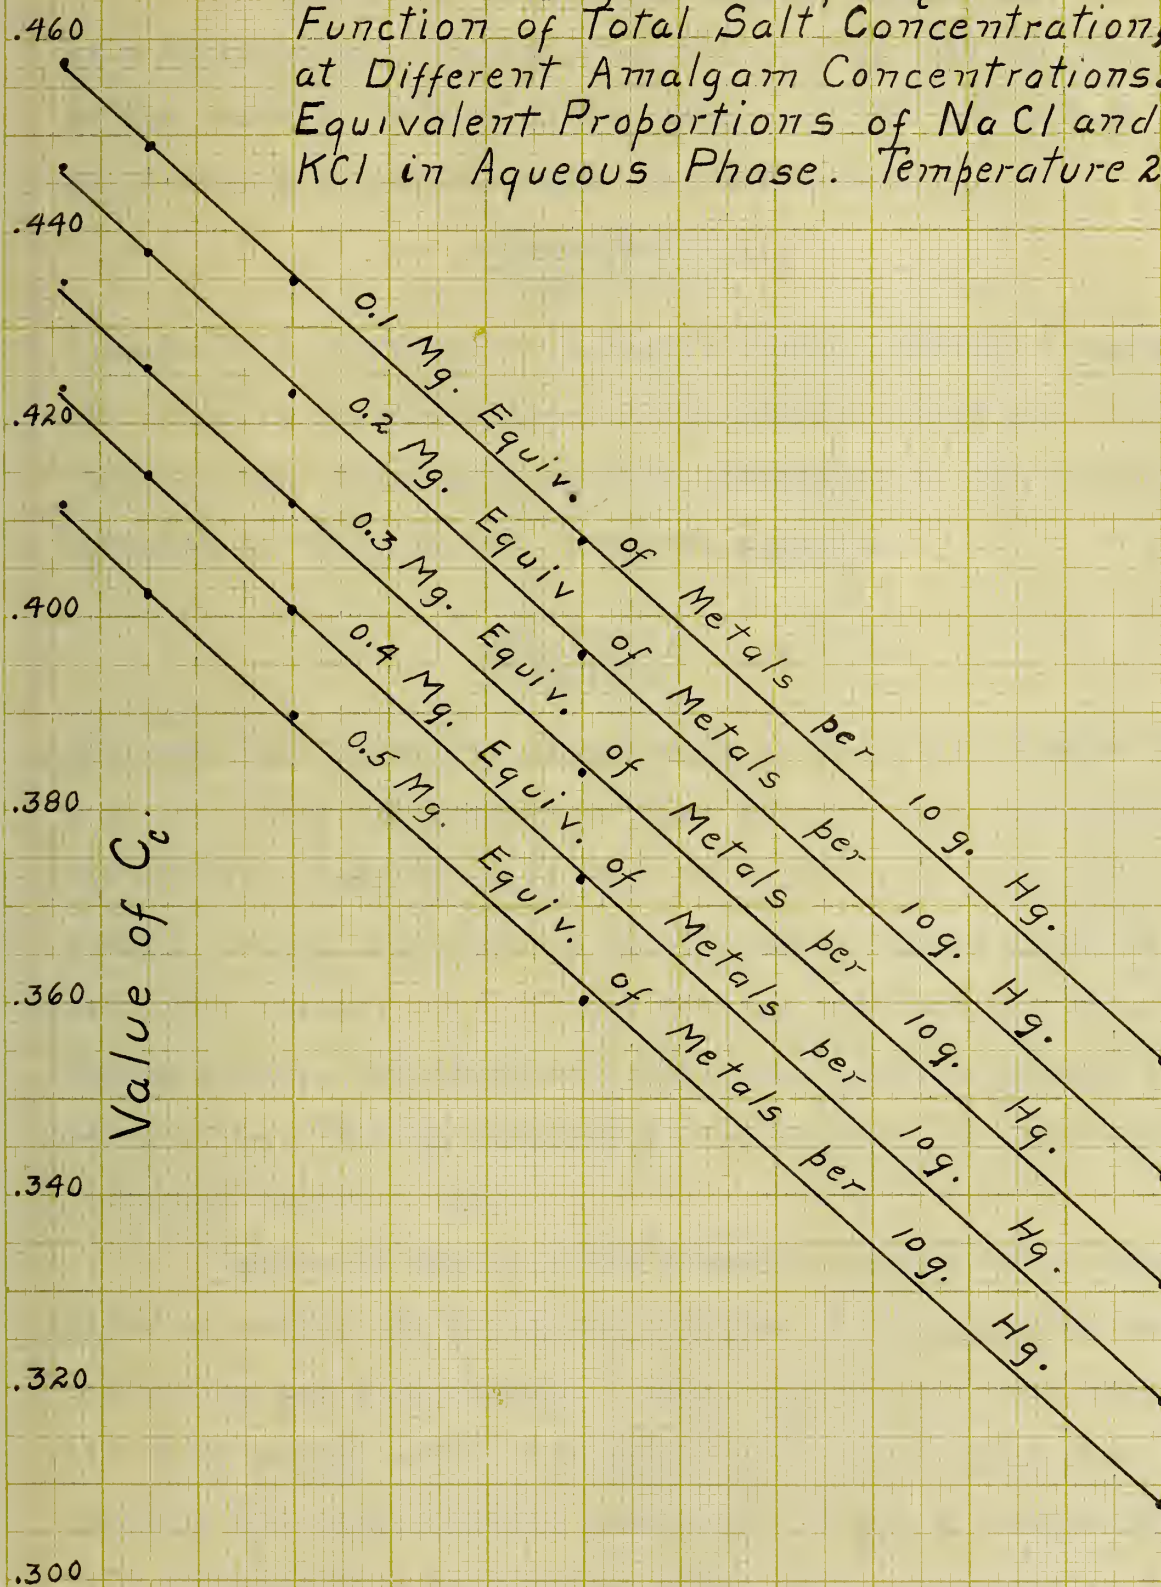 Function of Total Salt Concentration,
at Different Amalgam Concentrations.
Equivalent Proportions of NaCl and
KCl in Aqueous Phase. Temperature 2
.460
.440
.420
.400
.380
.360
.340
.320
.300
Value of Cc.
0.1 Mg. Equiv. of Metals per 10 g. Hg.
0.2 Mg. Equiv of Metals per 10g. Hg.
0.3 Mg. Equiv. of Metals per 10g. Hg.
0.4 Mg. Equiv. of Metals per 10g. Hg.
0.5 Mg. Equiv. of Metals per 10g. Hg.